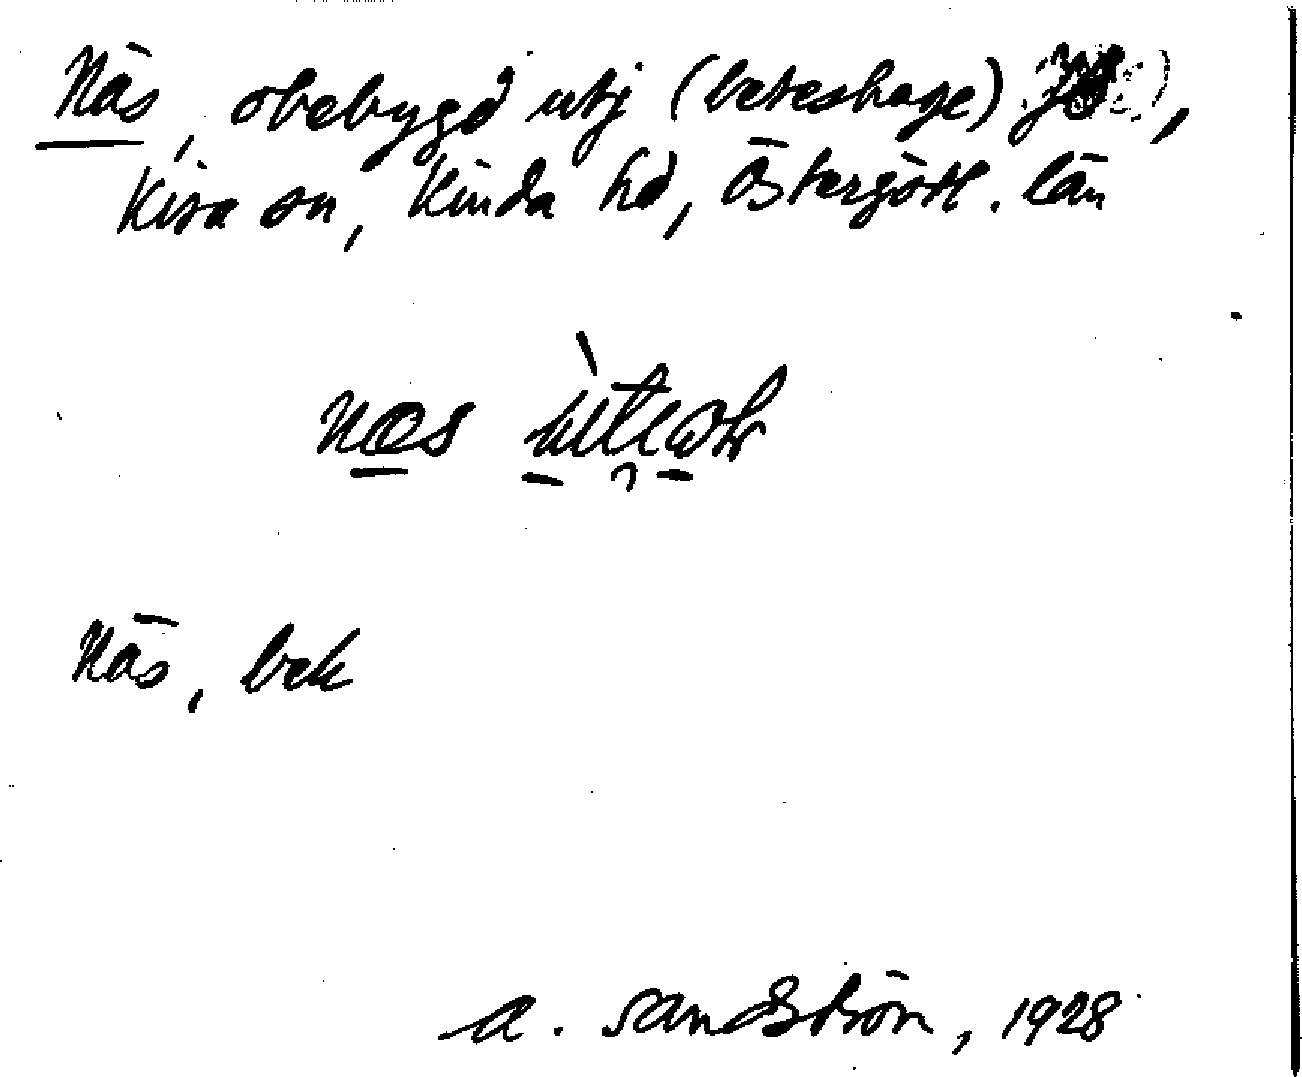 Näs, obebygd utj (beteshage),
Kisa sn, Kinda hd, Östergötl. län
næs
Näs, bek
A. Sandström, 1928